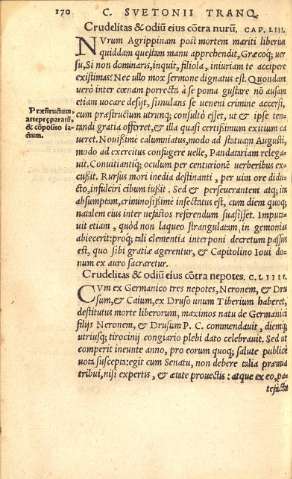 170 C. SVETONII TRANQ.
Crudelitas & odiũ eius cõtra nurũ, CAP. LIII.
NVrum Agrippinam post mortem mariti liberius
quiddam questam manu apprehendit, Græcoq; ver
su, Si non dominaris, inquit, filiola, iniuriam te accipere
existimas? Nec ullo mox sermone dignatus est. Quondam
uerò inter cœnam porrecta à se poma gustare nõ ausam
etiam uocare desijt, simulans se ueneni crimine accersi,
cum præstructum utrunq; consultò esset, ut & ipse ten-
tandi gratia offerret, & illa quasi certissimum exitium ca
ueret. Nouissime calumniatus, modo ad statuam Augusti,
modo ad exercitus confugere uelle, Pandatariam relega-
uit. Conuitiantiq; oculum per centurionē uerberibus ex-
cussit. Rursus mori inedia destinanti, per uim ore didu-
cto, infulciri cibum iussit. Sed & perseuerantem atq; in
absumptam, criminosissime insectatus est, cum diem quoq;
natalem eius inter nefastos referendum suasisset. Impu-
uit etiam, quòd non laqueo strangulatam in gemonias
abiecerit: proq; tali clementia interponi decretum passus
est, quo sibi gratiæ agerentur, & Capitolino Ioui do-
num ex auro sacraretur.
Præstructum,
arte præparatũ,
& cõposito fa-
ctum.
Crudelitas & odiũ eius cõtra nepotes. C. LIIII.
CVm ex Germanico tres nepotes, Neronem, & Dru
sum, & Caium, ex Druso unum Tiberium haberet,
destitutus morte liberorum, maximos natu de Germanici
filijs Neronem, & Drusum P. C. commendauit, diemq;
utriusq; tirocinij congiario plebi dato celebrauit. Sed ut
comperit ineunte anno, pro eorum quoq; salute publicè
uota suscepta: egit cum Senatu, non debere talia præmia
tribui, nisi expertis, & ætate prouectis: atque ex eo, pa-
tefacta